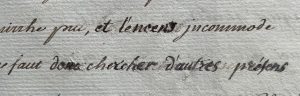 mirrhe pue, et l'encens incommode
faut donc chercher d'autres présens